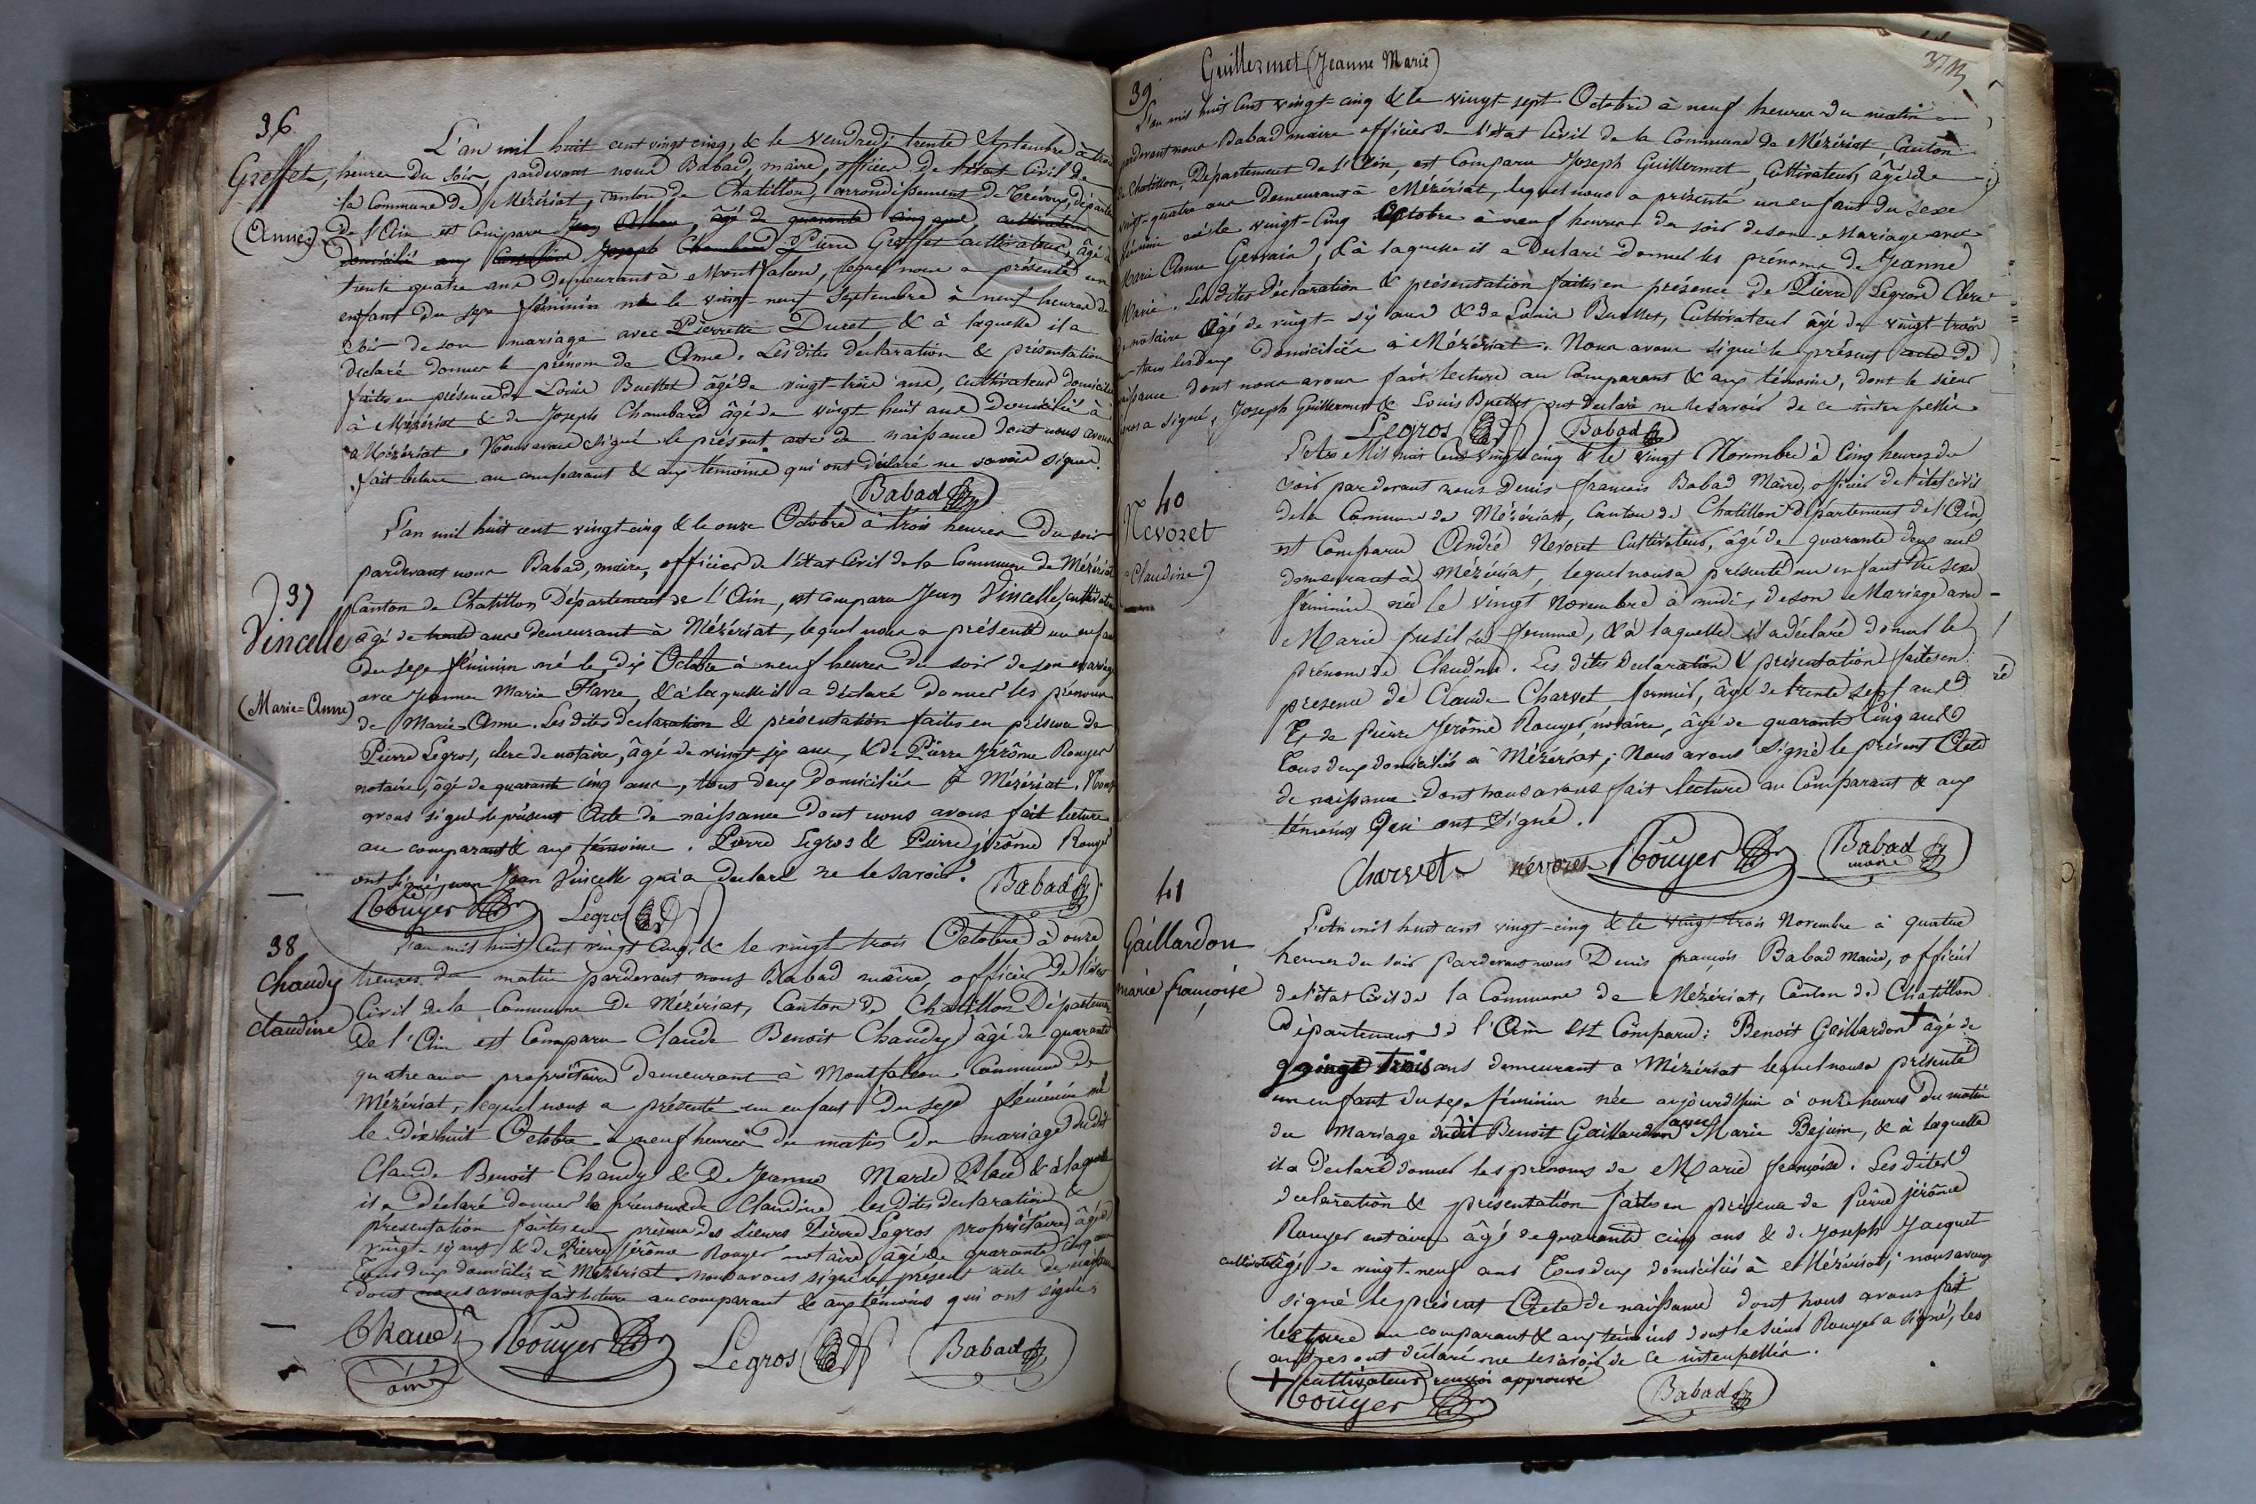 36
Greffet,
(Anne)
L'an mil huit cent vingt cinq, & le Vendredi trente Septembre à trois
heures du soir, pardevant nous Babad, maire, officier de l'état Civil de
la Commune de Mézériat, canton de Chatillon, arrondissement de Trévoux, départe
de l'Ain est comparu Jean âgé de quarante cinq ans cultivateur
domicilié aux Joseph Chambard Pierre Greffet cultivateur, âgé de
trente quatre ans demeurant à Montfalcon, lequel nous a présenté un
enfant du sexe féminin né le vingt neuf Septembre à neuf heures du
soir de son mariage avec Pierrette Duret, & à laquelle il a
déclaré donner le prénom de Anne. Les dites déclaration & présentation
faites en présence de Louis Buellet âgé de vingt-trois ans, cultivateur domicilié
à Mézériat & de Joseph Chambard âgé de vingt huit ans domicilié à
Mézériat. Nous avons signé le présent acte de naissance dont nous avons
fait lecture au comparant & aux témoins qui ont déclaré ne savoir signer.
Babad
37
Vincelle
(Marie=Anne)
L'an mil huit cent vingt-cinq & le onze Octobre à trois heures du soir
pardevant nous Babad, maire, officier de l'état Civil de la Commune de Mézériat
Canton de Chatillon Département de l'Ain, est comparu Jean Vincelle, cultivateur
âgé de trente ans demeurant à Mézériat, lequel nous a présenté un enfant
du sexe féminin né le dix Octobre à neuf heures du soir de son mariage
avec Jeanne Marie Favre, & à laquelle il a déclaré donner les prénoms
de Marie-Anne. Les dites déclaration & présentation faites en présence de
Pierre Legros, clerc de notaire, âgé de vingt-six ans, & de Pierre Jérôme Rouyer
notaire, âgé de quarante cinq ans, tous deux domiciliés à Mézériat. Nous
avons signé le présent Acte de naissance dont nous avons fait lecture
au comparant & aux témoins. Pierre Legros & Pierre jérôme Rouyer
ont signé, non Jean Vincelle qui a déclaré ne le savoir.
Rouyer Legros Babad
38
Chaudy
claudine
L'an mil huit Cent vingt cinq & le vingt trois Octobre à onze
heures du matin pardevant nous Babad maire, officier de l'état
Civil de la Commune de Mézériat, Canton de Chatillon Département
de l'Ain est Comparu Claude Benoit Chaudy âgé de quarante
quatre ans propriétaire demeurant à Montfalcon Commune de
Mézériat, lequel nous a présenté un enfant du sexe féminin né
le dixhuit Octobre à neuf heures du matin du mariage dudit
Claude Benoit Chaudy & de Jeanne Marie Place & à laquelle
il a déclaré donner le prénom de Claudine les dites déclaration &
présentation faites en présence des sieurs Pierre Legros propriétaire, âgé de
vingt-six ans & de Pierre jérôme Rouyer notaire âgé de quarante cinq ans
tous deux domiciliés à Mézériat. nous avons signé le présent acte de naissance
dont nous avons fait lecture au comparant & aux témoins qui ont signés
Chaudy Rouyer Legros Babad
ainé
39
Guillermet (Jeanne Marie)
L'an mil huit Cent vingt-cinq & le vingt sept Octobre à neuf heures du matin
pardevant nous Babad maire officier de l'état Civil de la Commune de Mézériat Canton
de Chatillon, Département de l'Ain, est Comparu Joseph Guillermet, Cultivateur, âgé de
vingt-quatre ans demeurant à Mézériat, lequel nous a présenté un enfant du sexe
féminin né le vingt-cinq Octobre à neuf heures du soir de son Mariage avec
Marie Anne Gervais, & à laquelle il a déclaré donner les prénoms de Jeanne
Marie. Les dites déclaration & présentation faites en présence de Pierre Legros Clerc
de notaire âgé de vingt-six ans & de Louis Buellet, Cultivateur âgé de vingt trois
ans tous les deux domiciliés à Mézériat. Nous avons signé le présent acte de
naissance dont nous avons fait lecture au Comparant & aux témoins, dont le sieur
Legros a signé, Joseph Guillermet & Louis Buellet ont déclaré ne le savoir de ce interpellés.
Legros Babad
40
Nevoret
(Claudine)
L'An Mil huit Cent Vingt cinq & le vingt Novembre à Cinq heures du
soir pardevant nous Denis françois Babad Maire, officier de l'état civil
de la Commune de Mézériat, Canton de Chatillon Département de l'Ain,
est Comparu André Nevoret Cultivateur, âgé de quarante deux ans
demeurant à Mézériat, lequel nous a présenté un enfant du sexe
féminin née le vingt Novembre à midi, de son Mariage avec
Marie fusil sa femme, & à laquelle il a déclaré donner le
prénom de Claudine. Les dites déclaration & présentation faites en
présence de Claude Charvet fermier, âgé de trente sept ans
Et de pierre Jerôme Rouyer, notaire, âgé de quarante Cinq ans
tous deux domiciliés à Mézériat; Nous avons Signé le présent Acte
de naissance dont nous avons fait lecture au Comparant & aux
témoins Qui ont Signé.
Charvet nevoret Rouyer Babad
maire
41
Gaillardon
marie françoise
L'An mil huit cent vingt-cinq & le vingt-trois Novembre à quatre
heures du soir pardevant nous Denis françois Babad Maire, officier
de l'état Civil de la Commune de Mézériat, Canton de Chatillon
Département de l'Ain est Comparu: Benoit Gaillardon + âgé de
vingt trois ans demeurant a Mézériat lequel nous a présenté
un enfant du sexe féminin née aujourd'hui à onze heures du matin
du mariage dudit Benoit Gaillardon avec Marie Bejuin, & à laquelle
il a déclaré donner les prénoms de Marie françoise. Les dites
déclaration & présentation faites en présence de Pierre jérôme
Rouyer notaire âgé de quarante cinq ans & de Joseph Jacquet
cultivateur âgé de vingt-neuf ans tous deux domiciliés à Mézériat; nous avons
signé le présent Acte de naissance dont nous avons fait
lecture au comparant & aux témoins dont le sieur Rouyer a signé, les
autres ont déclaré ne le savoir de ce interpellés.
+ cultivateur renvoi approuvé
Rouyer Babad